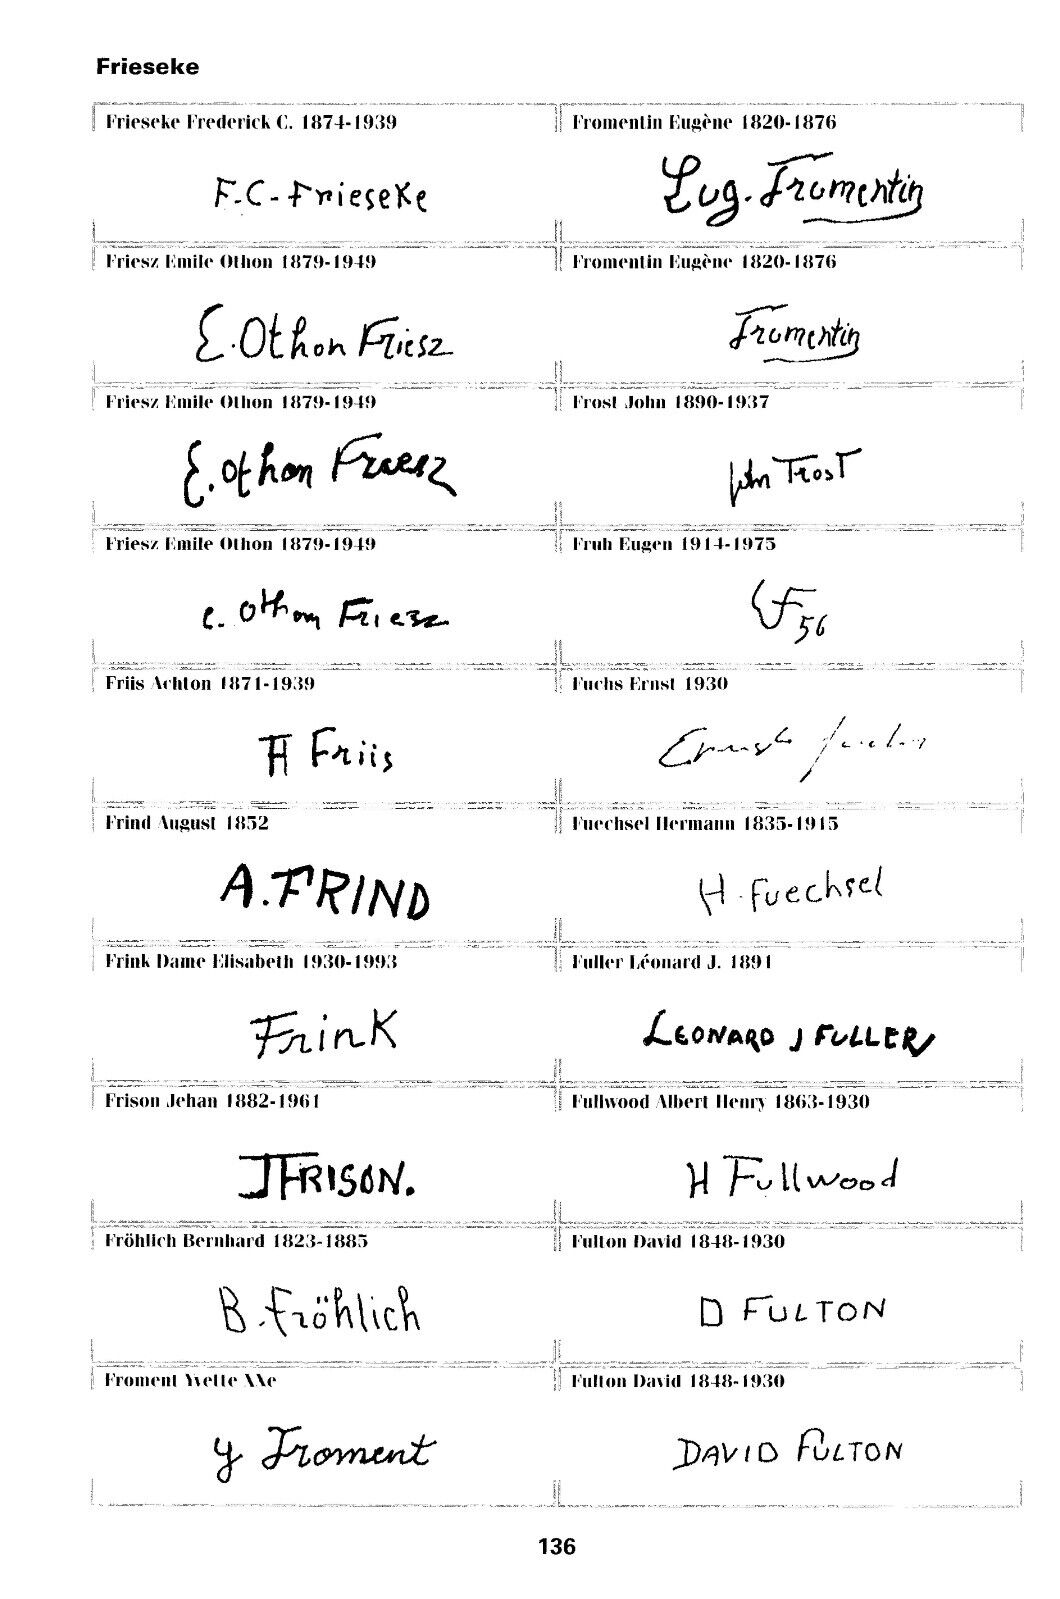 Frieseke
Frieseke Frederick C. 1874-1939
F.C-Frieseke
Friesz Emile Othon 1879-1949
E.Othon Friesz
Friesz Emile Othon 1879-1949
E.othon Friesz
Friesz Emile Othon 1879-1949
e. othon Friesz
Friis Achton 1871-1939
A Friis
Frind August 1852
A.FRIND
Frink Dame Elisabeth 1930-1993
Frink
Frison Jehan 1882-1961
JFRISON.
Fröhlich Bernhard 1823-1885
B.Fröhlich
Froment Yvette XXe
y Froment
Fromentin Eugène 1820-1876
Eug. Fromentin
Fromentin Eugène 1820-1876
Fromentin
Frost John 1890-1937
John Frost
Fruh Eugen 1914-1975
EF 56
Fuchs Ernst 1930
Ernst Fuchs
Fuechsel Hermann 1835-1915
H. Fuechsel
Fuller Léonard J. 1891
LEONARD J FULLER
Fullwood Albert Henry 1863-1930
H Fullwood
Fulton David 1848-1930
D FULTON
Fulton David 1848-1930
DAVID FULTON
136